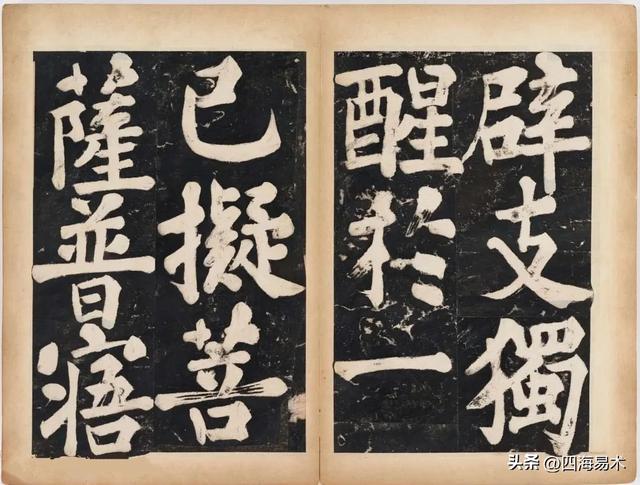 辟支獨
醒於一
已擬菩
薩普痦
头条 @四海易木